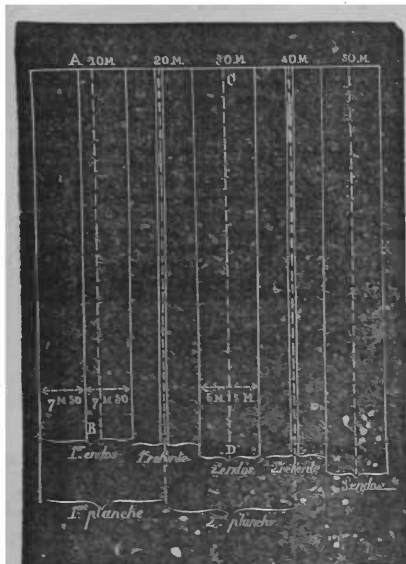 A 10 M. 20 M. 30 M. 40 M. 50 M.
C
7 M 50 7 M 50 5 M. 5 M.
B
D
1er endos 1re refente 2e endos 2e refente 3e endos
1re planche 2e planche